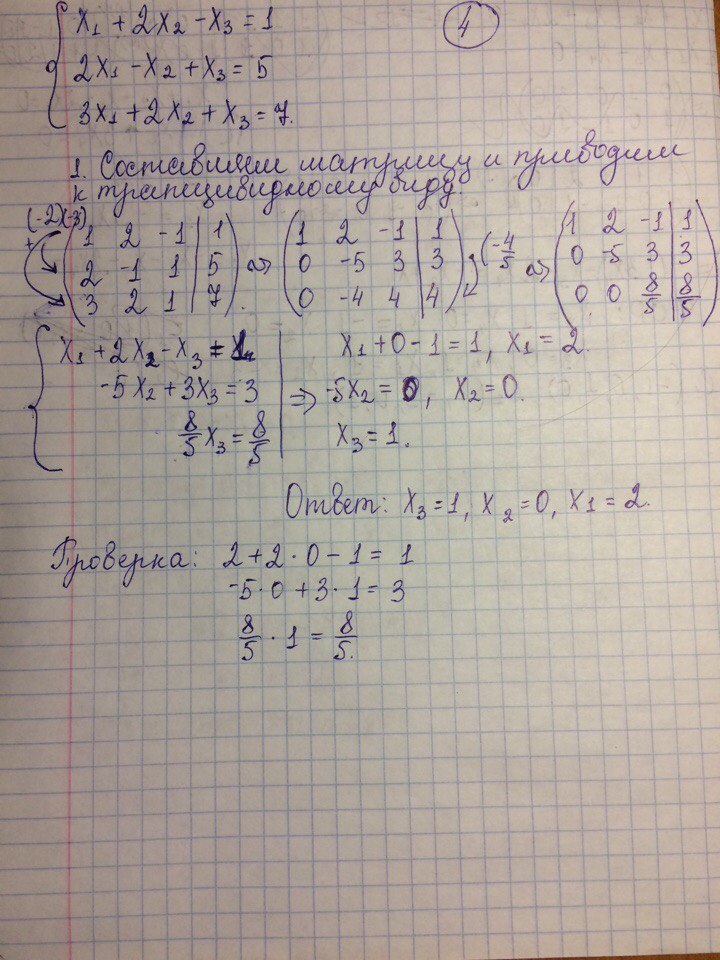 4
x₁ + 2x₂ - x₃ = 1
2x₁ - x₂ + x₃ = 5
3x₁ + 2x₂ + x₃ = 7.
1. Составляем матрицу и приводим
к трапецивидному виду
(-2)(-3)
+
1 2 -1 | 1
2 -1 1 | 5
3 2 1 | 7
~>
1 2 -1 | 1
0 -5 3 | 3
0 -4 4 | 4
(-4/5
~>
1 2 -1 | 1
0 -5 3 | 3
0 0 8/5 | 8/5
x₁ + 2x₂ - x₃ = 1
-5x₂ + 3x₃ = 3
8/5 x₃ = 8/5
=>
x₁ + 0 - 1 = 1, x₁ = 2.
-5x₂ = 0, x₂ = 0.
x₃ = 1.
Ответ: x₃ = 1, x₂ = 0, x₁ = 2.
Проверка: 2 + 2 · 0 - 1 = 1
-5 · 0 + 3 · 1 = 3
8/5 · 1 = 8/5.